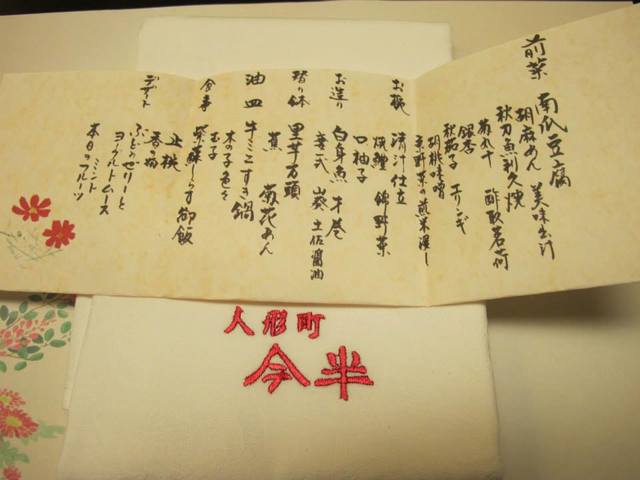 前菜 南瓜豆腐
胡麻あん 美味出汁
秋刀魚利久焼
菊丸十 酢取茗荷
銀杏 エリンギ
秋茄子
胡桃味噌
お椀 清汁仕立
焼鱧 錦野菜
口柚子
お造り 白身魚 手巻
妻一式 山葵 土佐醤油
替り鉢 里芋万頭
菊花あん
油皿 牛ミニすき鍋
木の子色々
玉子
食事 紫蘇しらす御飯
止椀
香の物
デザート ぶどうゼリーと
ヨーグルトムース
ミント
本日のフルーツ
人形町
今半